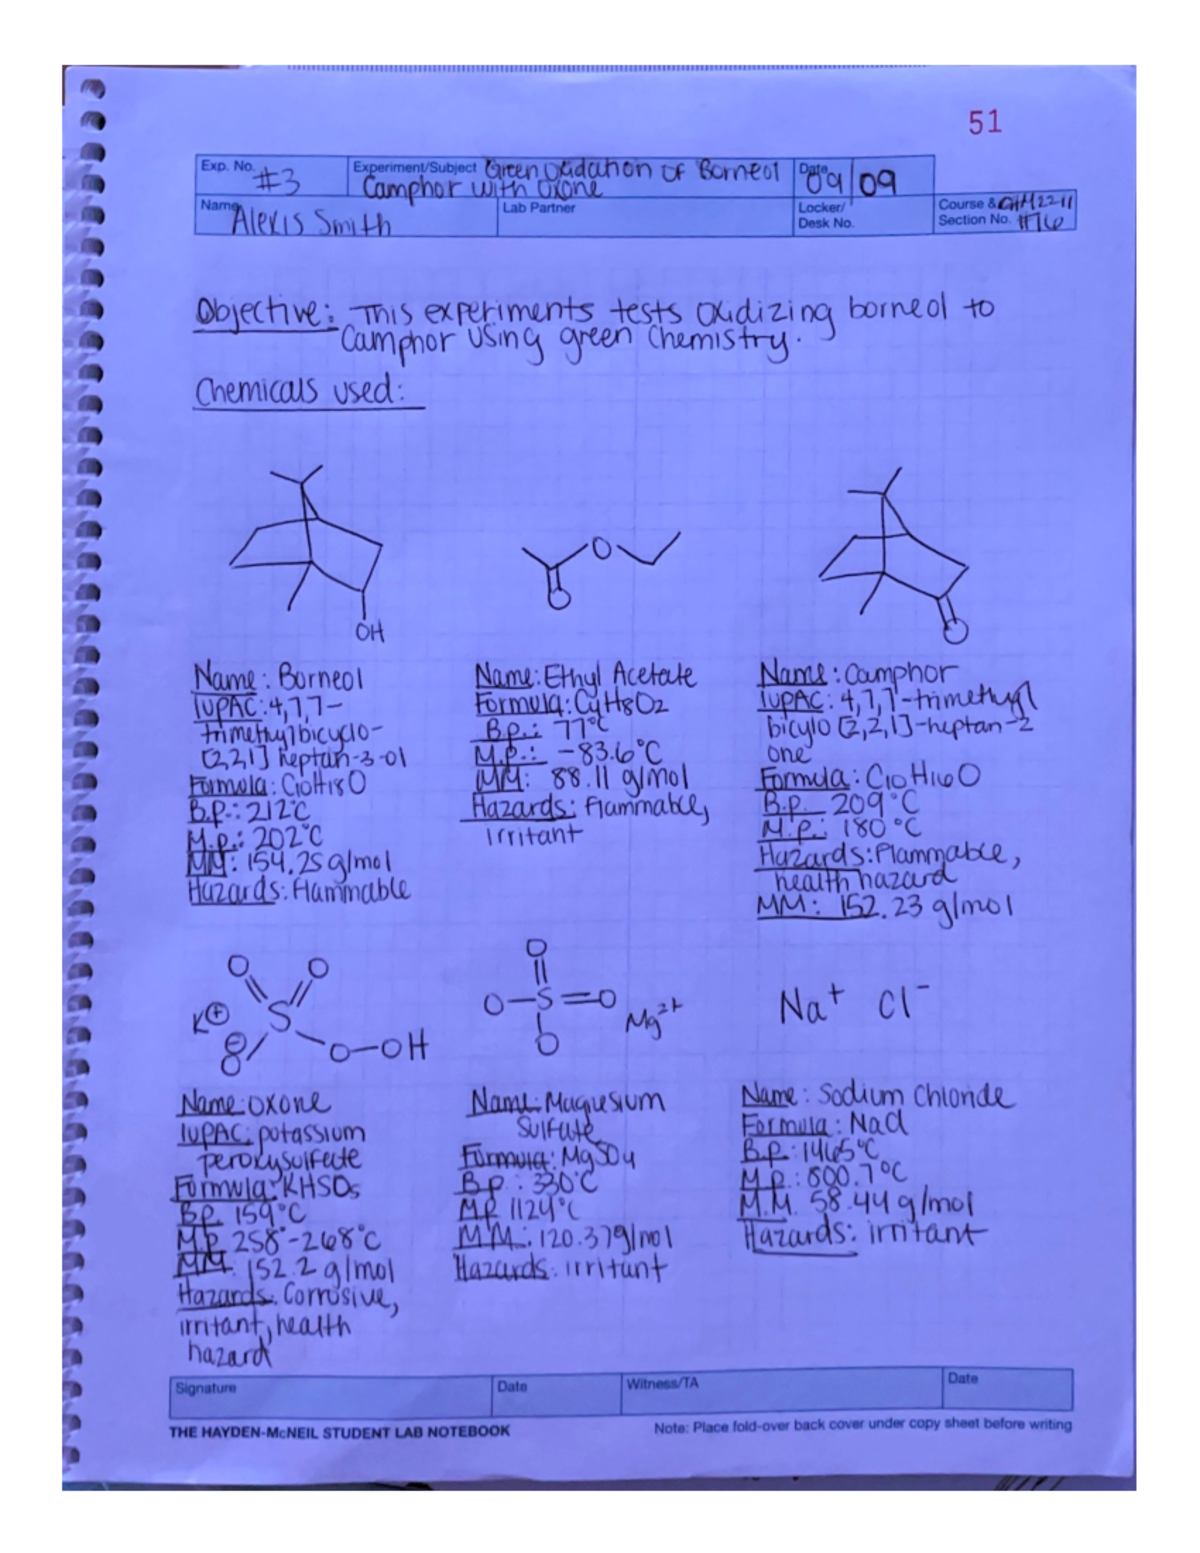 51
Exp. No. #3
Experiment/Subject Green Oxidation of Borneol
Camphor with Oxone
Date 09/09
Name Alexis Smith
Lab Partner
Locker/
Desk No.
Course & CHM2211
Section No. #76
Objective: This experiments tests oxidizing borneol to
Camphor using green chemistry.
Chemicals used:
OH
O
O
O
Name: Borneol
IUPAC: 4,7,7-
trimethylbicyclo-
[2,2,1] heptan-3-ol
Formula: C10H18O
B.P.: 212°C
M.p.: 202°C
MM: 154.25 g/mol
Hazards: Flammable
Name: Ethyl Acetate
Formula: C4H8O2
B.p.: 77°C
M.P.: -83.6°C
MM: 88.11 g/mol
Hazards: Flammable,
irritant
Name: Camphor
IUPAC: 4,7,7-trimethyl
bicylo [2,2,1]-heptan-2
one
Formula: C10H16O
B.p. 209°C
M.p.: 180°C
Hazards: Flammable,
health hazard
MM: 152.23 g/mol
O O
K⊕ S
⊖ O-OH
O
O-S=O Mg2+
O
Na+ Cl-
Name: Oxone
IUPAC: potassium
peroxysulfate
Formula: KHSO5
BP. 159°C
M.P. 258°-268°C
MM: 152.2 g/mol
Hazards: Corrosive,
irritant, health
hazard
Name: Magnesium
Sulfate
Formula: MgSO4
B.p.: 330°C
MP 1124°C
MM.: 120.37g/mol
Hazards: irritant
Name: Sodium Chloride
Formula: NaCl
B.P.: 1465°C
M.p.: 800.7°C
M.M. 58.44 g/mol
Hazards: irritant
Signature
Date
Witness/TA
Date
THE HAYDEN-McNEIL STUDENT LAB NOTEBOOK
Note: Place fold-over back cover under copy sheet before writing